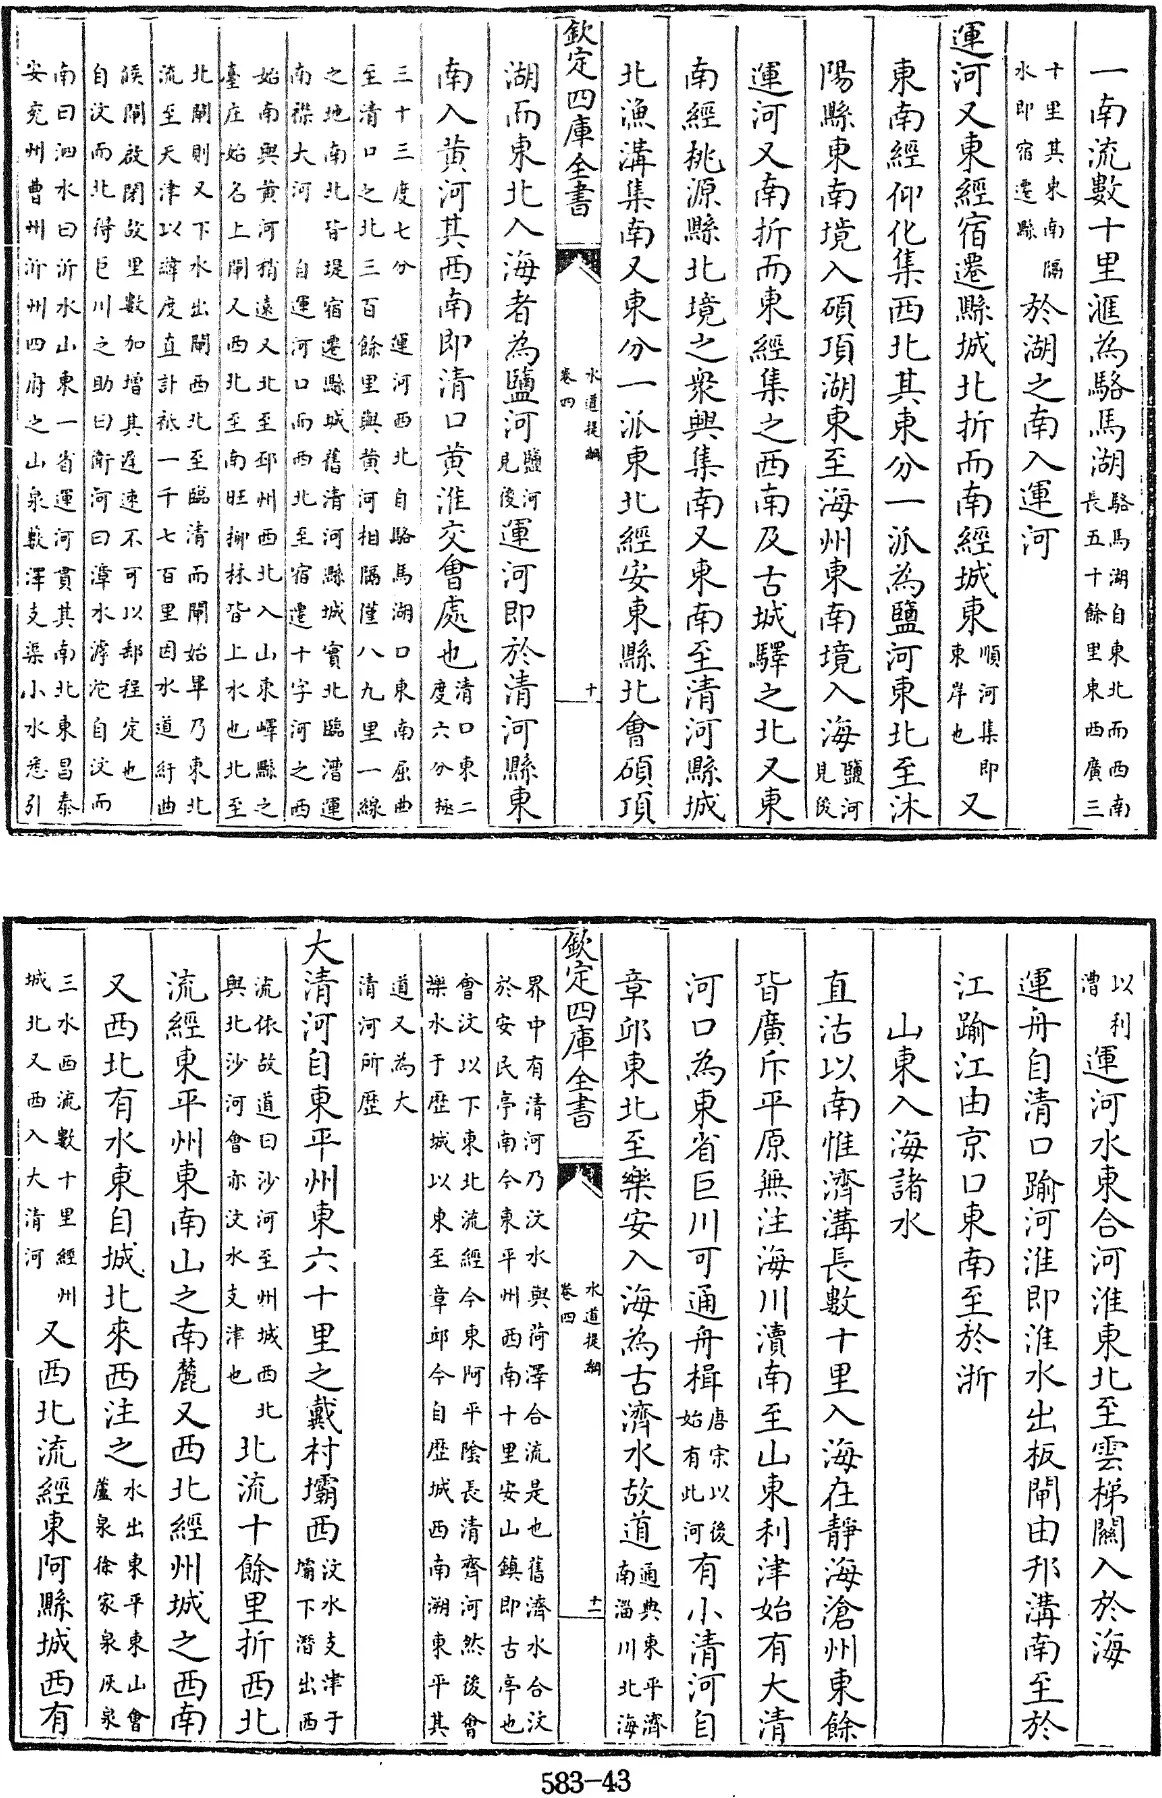 一南流數十里滙為駱馬湖駱馬湖自東北而西南長五十餘里東西廣三
十里其東南隔水即宿遷縣於湖之南入運河
運河又東經宿遷縣城北折而南經城東順河集即東岸也又
東南經仰化集西北其東分一派為鹽河東北至沭
陽縣東南境入碩項湖東至海州東南境入海鹽河見後
運河又南折而東經集之西南及古城驛之北又東
南經桃源縣北境之衆興集南又東南至清河縣城
北漁溝集南又東分一派東北經安東縣北會碩項
欽定四庫全書 水道提綱 卷四 十
湖而東北入海者為鹽河鹽河見後運河即於清河縣東
南入黄河其西南即清口黄淮交會處也清口東二度六分極
三十三度七分 運河西北自駱馬湖口東南屈曲至清口之北三百餘里與黄河相隔僅八九里一線
之地南北皆堤宿遷縣城舊清河縣城實北臨漕運南襟大河 自運河口而西北至宿遷十字河之西
始南與黄河稍遠又北至邳州西北入山東嶧縣之臺庄始名上閘又西北至南旺栁林皆上水也北至
北閘則又下水出閘西北至臨清而閘始畢乃東北流至天津以緯度直計袛一千七百里因水道紆曲
候閘啟閉故里數加增其遲速不可以郵程定也自汶而北得巨川之助曰衛河曰漳水滹沱自汶而
南曰泗水曰沂水山東一省運河貫其南北東昌泰安兖州曹州沂州四府之山泉藪澤支渠小水悉引
以利漕運河水東合河淮東北至雲梯關入於海
運舟自清口踰河淮即淮水出板閘由邗溝南至於
江踰江由京口東南至於浙
山東入海諸水
直沽以南惟濟溝長數十里入海在靜海滄州東餘
皆廣斥平原無注海川瀆南至山東利津始有大清
河口為東省巨川可通舟楫唐宋以後始有此河有小清河自
章邱東北至樂安入海為古濟水故道通典東平濟南淄川北海
欽定四庫全書 水道提綱 卷四 十一
界中有清河乃汶水與菏澤合流是也舊濟水合汶於安民亭南今東平州西南十里安山鎮即古亭也
會汶以下東北流經今東阿平陰長清齊河然後會濼水于歴城以東至章邱今自歴城西南溯東平其
道又為大清河所歴
大清河自東平州東六十里之戴村壩西汶水支津于壩下潛出西
流依故道曰沙河至州城西北與北沙河會亦汶水支津也北流十餘里折西北
流經東平州東南山之南麓又西北經州城之西南
又西北有水東自城北來西注之水出東平東山會蘆泉徐家泉灰泉
三水西流數十里經州城北又西入大清河又西北流經東阿縣城西有
583-43